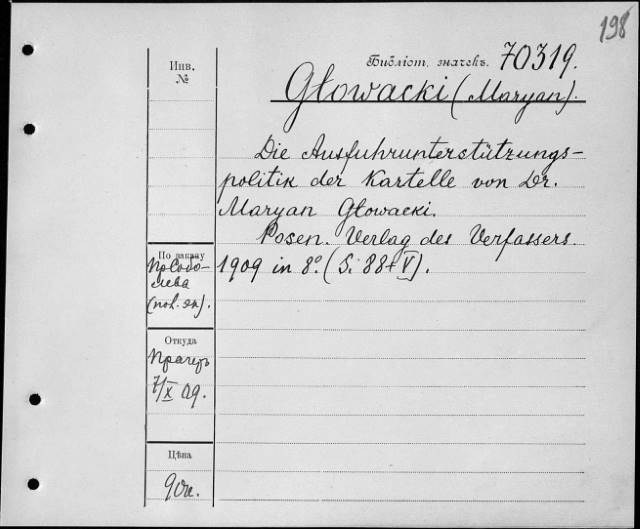 198
Библіот. значекъ. 70319.
Инв.
№
Głowacki (Maryan).
Die Ausfuhrunterstützungs-
politik der Kartelle von Dr.
Maryan Głowacki.
Posen. Verlag des Verfassers.
1909 in 8°. (S. 88+V).
По заказу
Пр. Собо-
лева
Откуда
7/X 09.
Цѣна